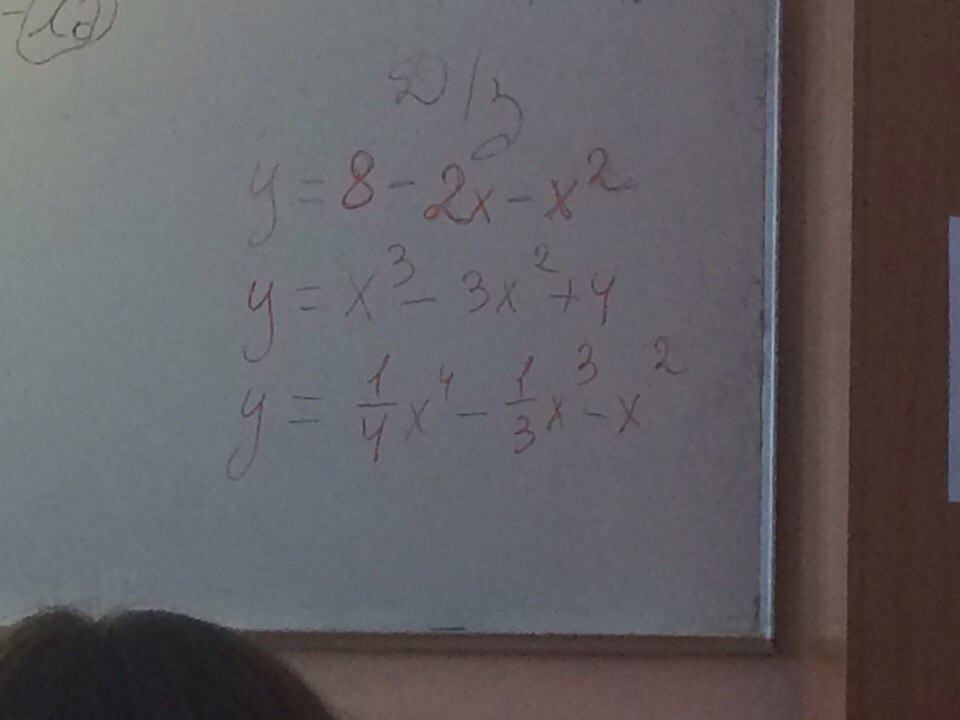 Д/з
y = 8 - 2x - x²
y = x³ - 3x² + 4
y = 1/4 x⁴ - 1/3 x³ - x²